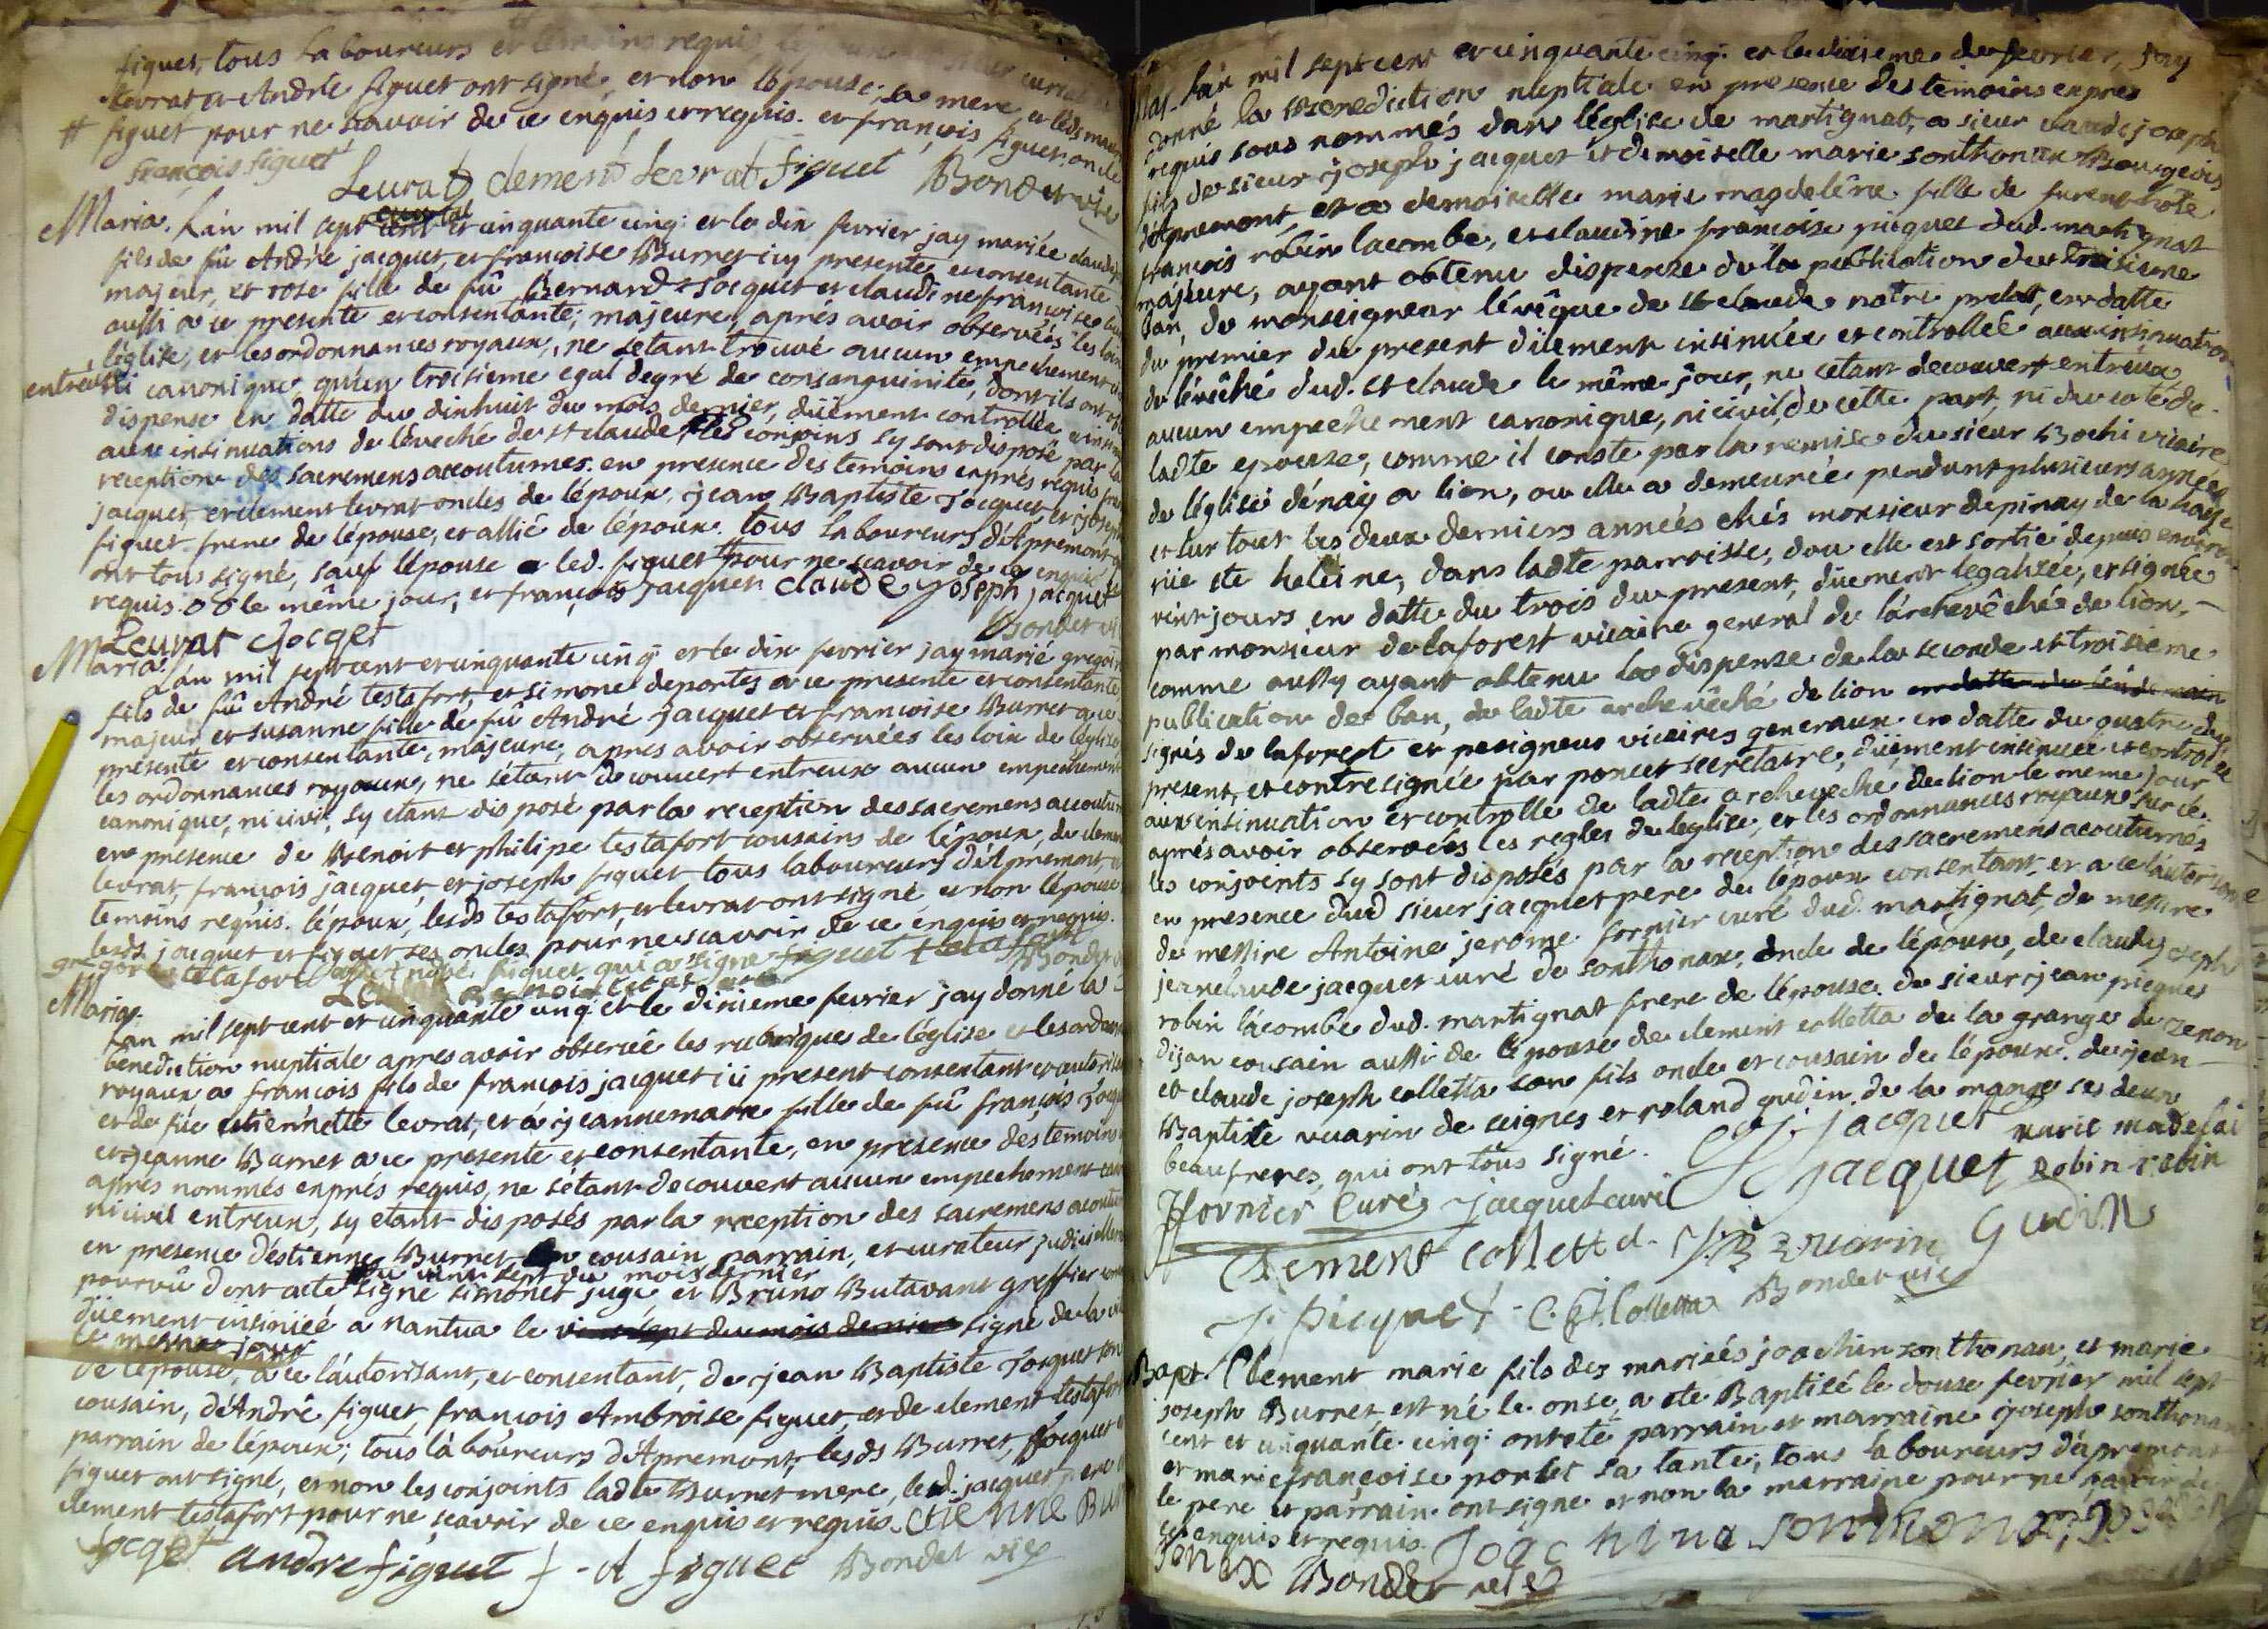 figuet, tous laboureurs et temoins requis
levrat et André figuet ont signé, et non lépouse, sa mere, et leds
# figuet pour ne scavoir de ce enquis et requis. et françois figuet, oncle
françois figuet
Leurat clement levrat figuet Bondet vic
Maria. Lán mil sept cent et cinquante cinq: et le dix fevrier jay mariée claude
fils de fû André jacquet, et françoise Burret icy presente, et consentante
majeur, et rose fille de fû Bernard Jacquet et claudine françoise
aussi a ce presente et consentante; majeure, aprés avoir observées les loix
léglise, et les ordonnances royaux, ne setant trouvé aucun empechement
entreux ni canonique, quún troisieme egal degré de consanguinité, dont ils ont
dispense en datte du dixhuit du mois dernier, düement controllée et
aux insinuations de lévéché de st claude, les conjoins sy sont disposé par la
reception des sacremens accoutumés. en presence des temoins exprés requis
jacquet, et clement levrat oncles de lépoux, jean Baptiste Jacquet, et joseph
figuet frere de lépouse, et allié de lépoux. tous laboureurs dApremont
ont tous signé, sauf lépouse led. figuet # pour ne scavoir de ce enquis
requis. le même jour, et françois jacquet claude joseph jacquet
Leurat Jocqet Bondet vi
Maria. Lán mil sept cent et cinquante cinq et le dix fevrier jay marié gregoire
fils de fû André testafort, et simone deportes a ce presente et consentante
majeur et susanne fille de fû André jacquet et françoise Burret a ce
presente et consentante, majeure, apres avoir observées les loix de léglise
les ordonnances royaux, ne sétant decouvert entreux aucun empechement
canonique, ni civil, sy etant disposé par la reception des sacremens accoutu
en presence de Benoit et philipe testafort cousains de lépoux, de clem
levrat, françois jacquet, et joseph figuet, tous laboureurs dApremont,
temoins requis. lépoux, leds testafort, et levrat ont signé, et non lépouse
leds. jacquet et figuet ses oncles pour ne scavoir de ce enquis et requis.
gregoire tetafort figuet qui a signe figuet tetafort
Bondet
Maria. Lan mil sept cent et cinquante cinq et le dixieme fevrier jay donné la
benediction nuptiale apres avoir observé les rubriques de léglise et les ordon
royaux a françois fils de françois jacquet ici present consentant et autoris
et de füe etiennette levrat, et à jeannemarie fille de fû françois Jocq
et jeanne Burret a ce presente et consentante, en presence des temoins
aprés nommés exprés requis, ne sétant decouvert aucun empechement can
ni civil entreux, sy etant disposés par la reception des sacremens acoutu
en presence déstienne Burret cousain parrain, et curateur judiciellem
du vint sept du mois dernier
pourvû dont acte signé simonet juge et Bruno Butavant greffier
düement insinüé a nantua le vint sept du mois dernier signé de la
le meme jour
de lépouse, a ce láutorisant, et consentant, de jean Baptiste Jocquet son
cousain, déAndré figuet, françois Ambroise figuet, et de clement testafort
parrain de lépoux; tous láboureurs dApremont, leds Burret, Jocquet
figuet ont signé, et non les conjoints ladte Burret mere, led. jacquet pere
clement testafort pour ne scavoir de ce enquis et requis. etienne Bur
Jocqet andre figuet f - A figuet Bondet vic
Lán mil sept cent et cinquante cinq: et le dixieme de fevrier, jay
donné la Benediction nuptiale en presence des temoins exprés
requis sous nommés dans léglise de martignat, a sieur claude joseph
fils de sieur joseph jacquet et demoiselle marie sonthonax Bourgeois
dApremont, et a demoiselle marie magdelêne fille de
françois robin lacombe, et claudine françoise picquet dud. martignat
majeure, ayant obtenu dispenze de la publication du troisieme
ban, de monseigneur lévêque de st claude notre prelat, en datte
du premier du present düement insinuée et controllée aux insinuation
de lévêché dud. st claude le même jour, ne setant decouvert entreux
aucun empechement canonique, ni civil, de cette part, ni du coté de
ladte epouze, comme il conste par la remise du sieur Bochi vicaire
de léglise dénay a lion, ou elle a demeurée pendant plusieurs années
et sur tout les deux derniers années chés monsieur depinay de la haye
rüe ste heleine, dans ladte parroisse, dou elle est sortie depuis environ
vint jours en datte du trois du present, düement legalisée, et signée
par monsieur de laforest vicaire general de lárchevêché de lion,
comme aussy ayant obtenu la dispenze de la seconde et troisieme
publication de ban, de ladte archevêché de lion en datte du léndemain
signés de laforest et pesigneus vicaires generaux en datte du quatre du
present, et contresignée par poncet secretaire, düement insinuée et controlée
aux insinuation et controlle de ladte archeveché de lion le meme jour
aprés avoir observées les regles de leglise, et les ordonnances royaux sur ce
les conjoints sy sont disposés par la reception des sacremens acoutumés
en presence dud sieur jacquet pere de lépoux consentant, et a ce láutorisant
de messire Antoine jerome fornier curé dud. martignat, de messire
jeanclaude jacquet curé de sonthonax, oncle de lépoux, de claude joseph
robin lácombe dud. martignat frere de lépouse, de sieur jean picquet
dijan cousain aussi de lépouse de clement colletta de la grange de zenon
et claude joseph colletta son fils oncle et cousain de lépoux. de jean
Baptiste vuarin de ceignes et roland gudin de la mange ses deux
beaufreres, qui ont tous signé. C.J. jacquet marie madelai
Jacquet Robin robin
Jfornier Curé Jacquet curé
Clement Collettd. JB Vuarin Gudin
J. Picquet - C. J. Colletta Bondet vic
Bapt. Clement marie fils des mariéés joachim sonthonax, et marie
joseph Burret, est né le onse, a ete Baptisé le douse fevrier mil sept
cent et cinquante cinq: ont eté parrain et marraine joseph sonthonax
et mariefrançoise pontet sa tante; tous láboureurs dápremont
le pere et parrain ont signe et non la marraine pour ne scavoir de
ce enquis et requis. Joachina sonthonax, J. Joseph son
tonax Bondet vic